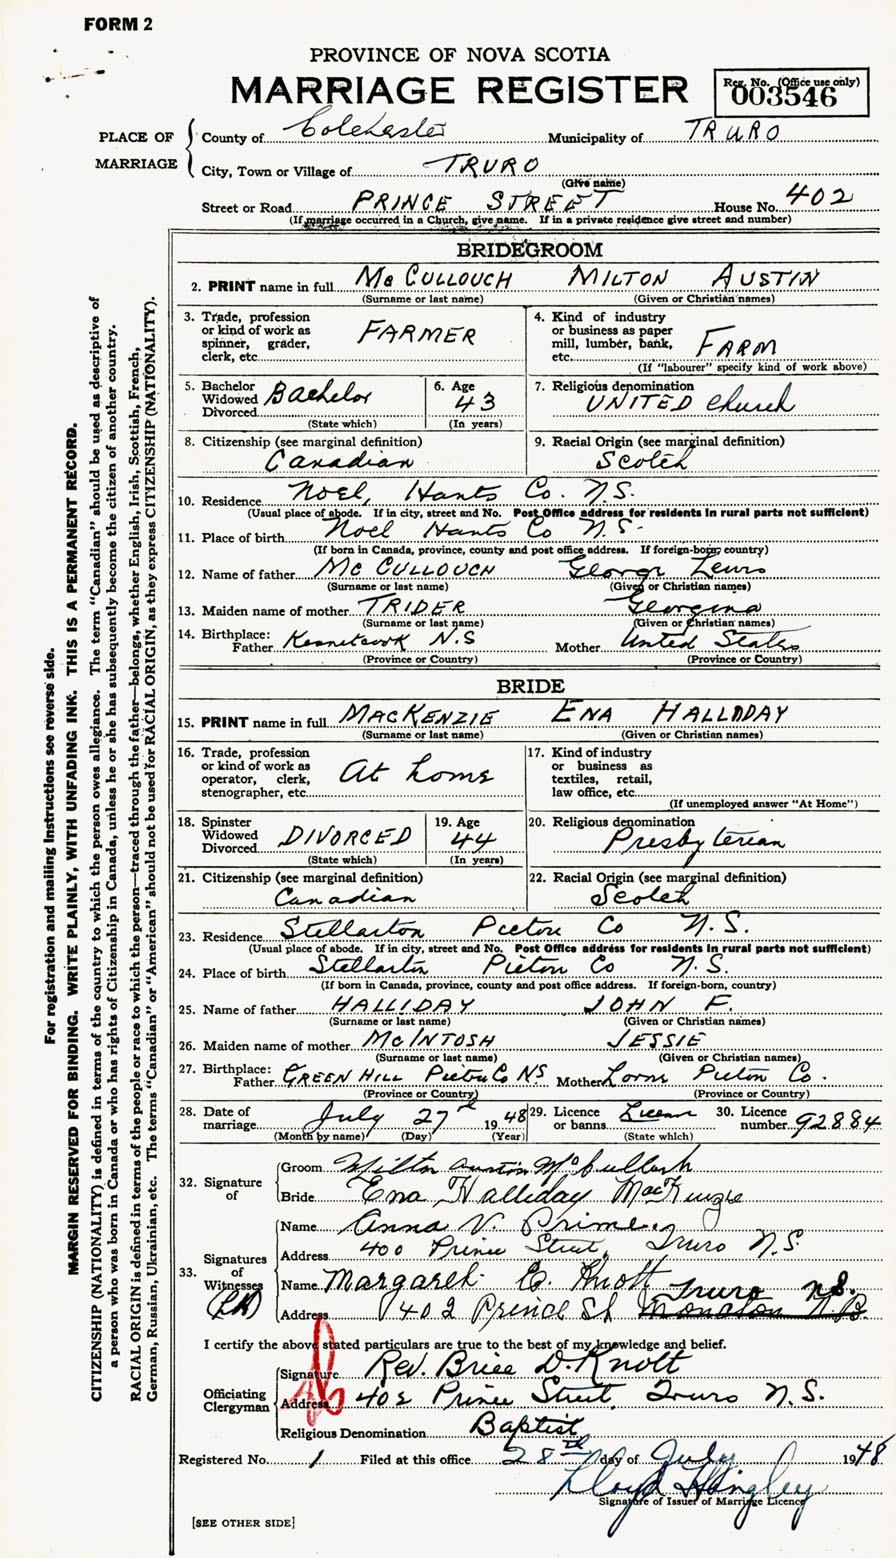 FORM 2
PROVINCE OF NOVA SCOTIA
MARRIAGE REGISTER
Reg. No. (Office use only)
003546
PLACE OF MARRIAGE
County of Colchester Municipality of TRURO
City, Town or Village of TRURO
(Give name)
Street or Road PRINCE STREET House No. 402
(If marriage occurred in a Church, give name. If in a private residence give street and number)
BRIDEGROOM
2. PRINT name in full McCULLOUCH MILTON AUSTIN
(Surname or last name) (Given or Christian names)
3. Trade, profession or kind of work as spinner, grader, clerk, etc. FARMER
4. Kind of industry or business as paper mill, lumber, bank, etc. FARM
(If "labourer" specify kind of work above)
5. Bachelor Widowed Divorced Bachelor
(State which)
6. Age 43
(In years)
7. Religious denomination UNITED Church
8. Citizenship (see marginal definition) Canadian
9. Racial Origin (see marginal definition) Scotch
10. Residence Noel, Hants Co. N.S.
(Usual place of abode. If in city, street and No. Post Office address for residents in rural parts not sufficient)
11. Place of birth Noel Hants Co N.S.
(If born in Canada, province, county and post office address. If foreign-born, country)
12. Name of father McCULLOUCH George Lewis
(Surname or last name) (Given or Christian names)
13. Maiden name of mother TRIDER Georgina
(Surname or last name) (Given or Christian names)
14. Birthplace: Father Kennetcook N.S Mother United States
(Province or Country) (Province or Country)
BRIDE
15. PRINT name in full MACKENZIE ENA HALLIDAY
(Surname or last name) (Given or Christian names)
16. Trade, profession or kind of work as operator, clerk, stenographer, etc. At home
17. Kind of industry or business as textiles, retail, law office, etc.
(If unemployed answer "At Home")
18. Spinster Widowed Divorced DIVORCED
(State which)
19. Age 44
(In years)
20. Religious denomination Presbyterian
21. Citizenship (see marginal definition) Canadian
22. Racial Origin (see marginal definition) Scotch
23. Residence Stellarton Pictou Co N.S.
(Usual place of abode. If in city, street and No. Post Office address for residents in rural parts not sufficient)
24. Place of birth Stellarton Pictou Co N.S.
(If born in Canada, province, county and post office address. If foreign-born, country)
25. Name of father HALLIDAY JOHN F.
(Surname or last name) (Given or Christian names)
26. Maiden name of mother McINTOSH JESSIE
(Surname or last name) (Given or Christian names)
27. Birthplace: Father GREEN HILL Pictou Co NS Mother Lorne Pictou Co.
(Province or Country) (Province or Country)
28. Date of marriage July 27th 1948
(Month by name) (Day) (Year)
29. Licence or banns License
(State which)
30. Licence number 92884
32. Signature of
Groom Milton Austin McCullouch
Bride Ena Halliday MacKenzie
33. Signatures of Witnesses
Name Anna V. Prime
Address 400 Prince Street, Truro N.S.
Name Margaret E. Knott
Truro N.S.
Address 402 Prince St Moncton N.B.
I certify the above stated particulars are true to the best of my knowledge and belief.
Officiating Clergyman
Signature Rev. Brice D. Knott
Address 402 Prince Street, Truro N.S.
Religious Denomination Baptist
Registered No. 1 Filed at this office 28th day of July 1948
Lloyd Hingley
Signature of Issuer of Marriage Licence
[SEE OTHER SIDE]
For registration and mailing instructions see reverse side.
MARGIN RESERVED FOR BINDING. WRITE PLAINLY, WITH UNFADING INK. THIS IS A PERMANENT RECORD.
CITIZENSHIP (NATIONALITY) is defined in terms of the country to which the person owes allegiance. The term "Canadian" should be used as descriptive of
a person who was born in Canada or who has rights of Citizenship in Canada, unless he or she has subsequently become the citizen of another country.
RACIAL ORIGIN is defined in terms of the people or race to which the person—traced through the father—belongs, whether English, Irish, Scottish, French,
German, Russian, Ukrainian, etc. The terms "Canadian" or "American" should not be used for RACIAL ORIGIN, as they express CITIZENSHIP (NATIONALITY).